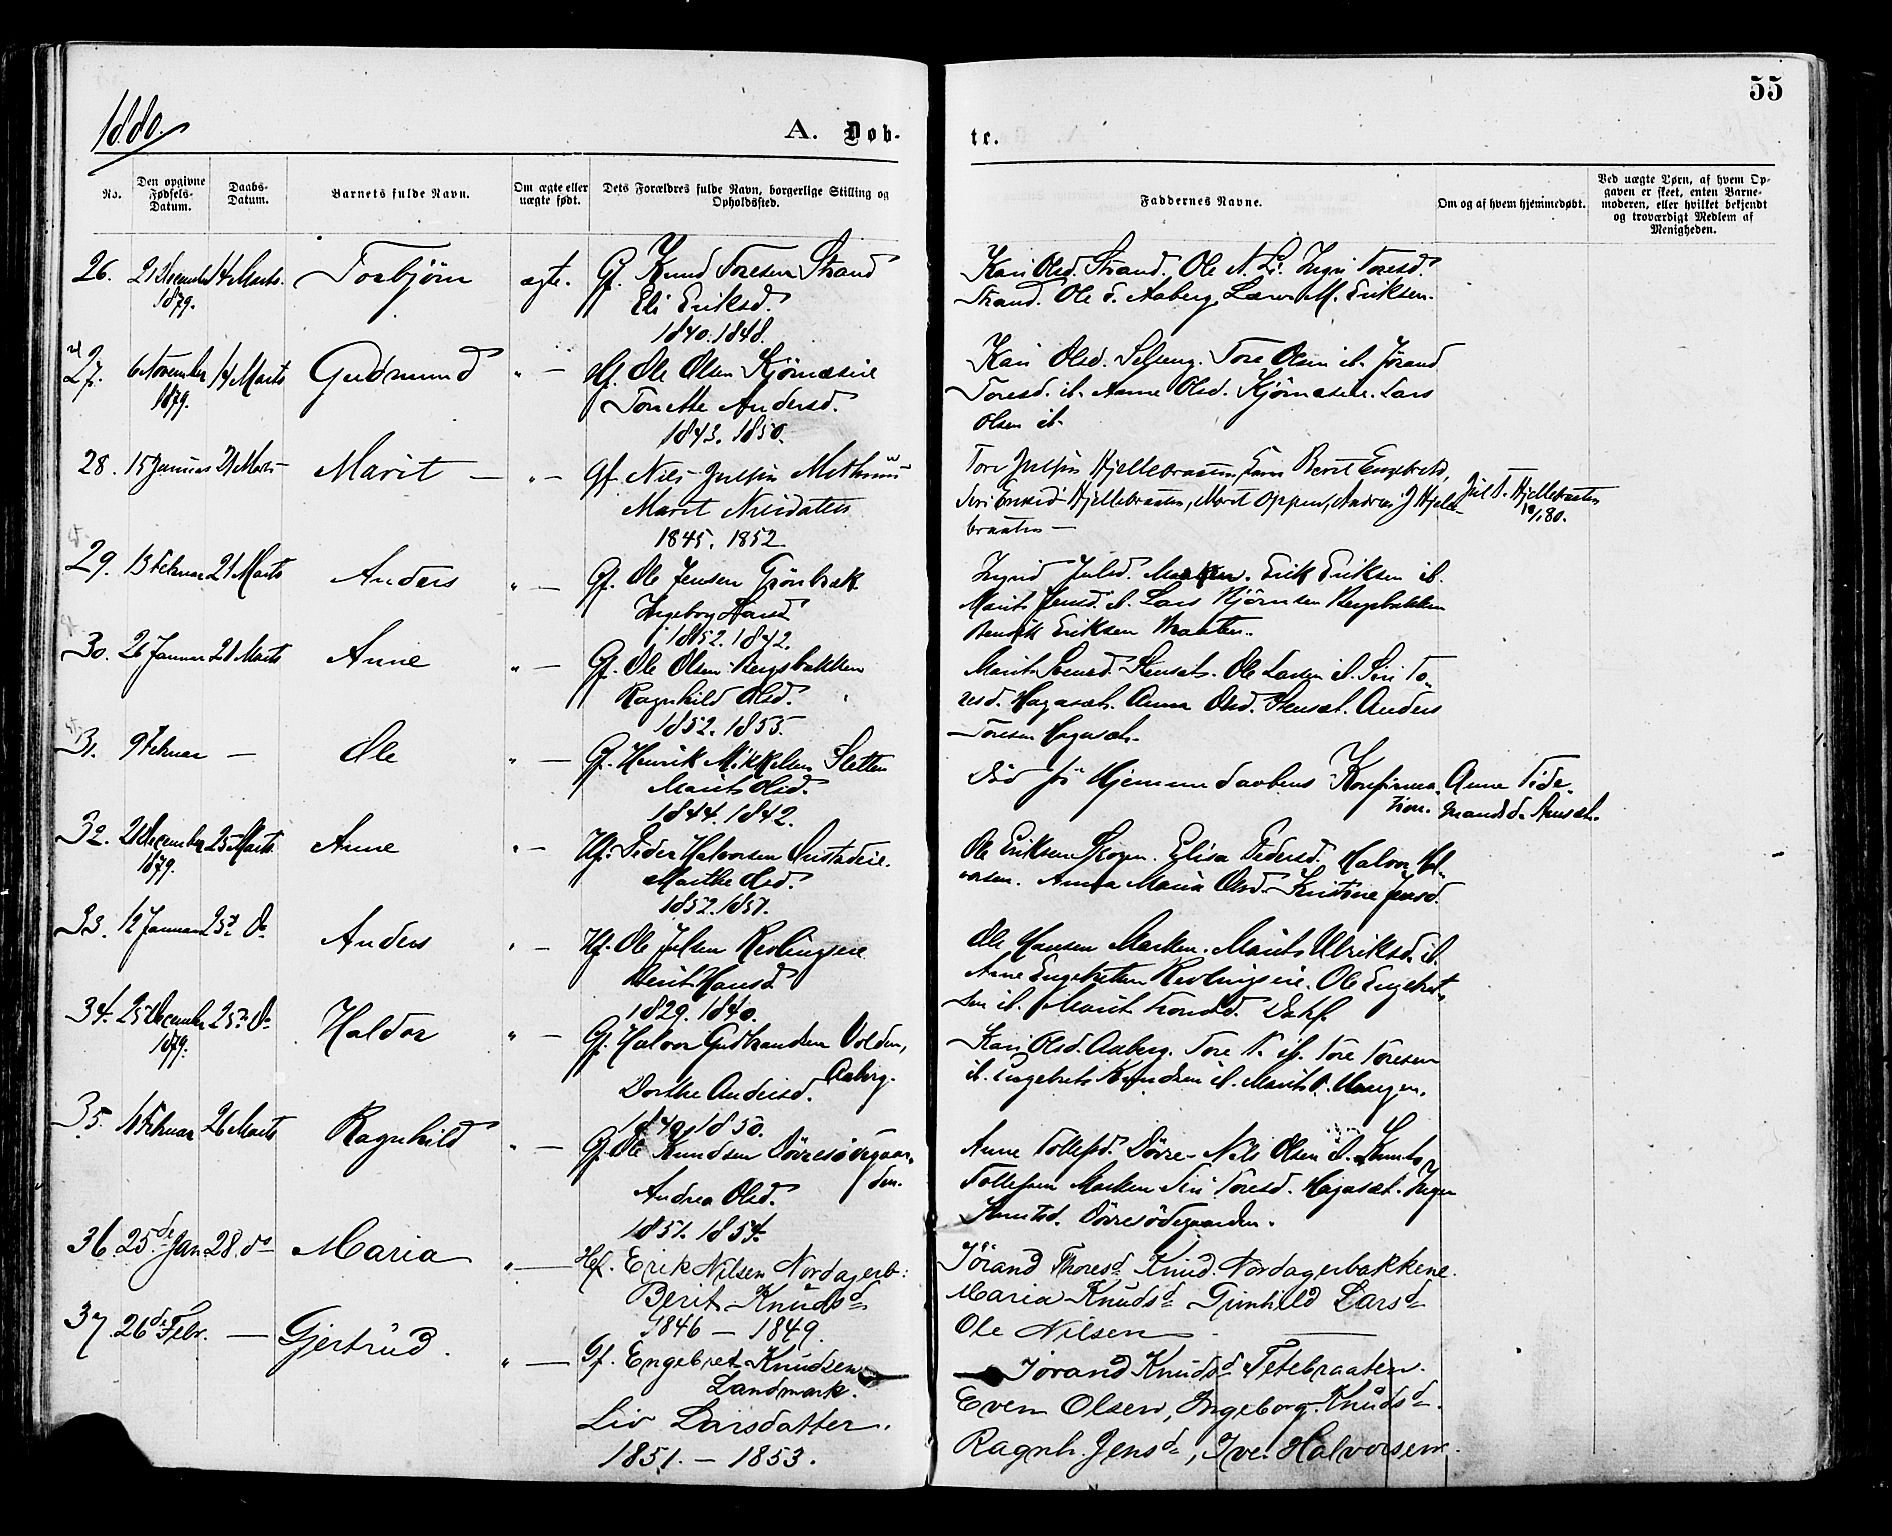 55
1880.
A. Døb-
te.
No.
Den opgivne Fødsels-Datum.
Daabs-Datum.
Barnets fulde Navn.
Om ægte eller uægte født.
Dets Forældres fulde Navn, borgerlige Stilling og Opholdssted.
Faddernes Navne.
Om og af hvem hjemmedøbt.
Ved uægte Børn, af hvem Opgaven er skeet, enten Barnemoderen, eller hvilket bekjendt og troværdigt Medlem af Menigheden.
26. 21 December 14 Marts. Torbjörn ægte. Gf. Knud Toresen Strand
1879. Eli Eriksd.
1840. 1848.
Kari Olsd. Strand. Ole N. Ingri Toresd.
Strand. Ole E. Aaberg. M. Eriksen.
27. 6 November 14 Marts Gudmund " — Ole Olsen Kjörnæseie
1879. Tonette Andersd.
1843. 1850.
Kari Olsd. Tore Olsen ib. Jörand
Toresd. ib. Anne Olsd. Kjörnæseie. Lars
Olsen ib.
28. 15 Januar 21 Marts Marit — " — Gf. Nils
Marit Nilsdatter
1845. 1852.
Tore Hjellebraaten, Berit Engebretsd,
Siri Hjellebraaten, Marit Oppen, Andreas J Hjelle-
braaten —
Hjellebraaten
80.
29. 13 Februar 21 Marts Anders " — Gf. Ole Jensen Grönbæk
Ingeborg Larsd
1852. 1842.
Ingrid Julsd. Erik Eriksen ib.
Marit Jensd. ib. Lars Björnsen Bergsbakken
Eriksen Braaten.
30. 26 Januar 21 Marts Anne " — Gf. Ole Olsen Bergsbakken
Ragnhild Olsd.
1852. 1855.
Marit Svensd. Stensæt. Ole Larsen ib. Siri To-
resd. Hagasæt. Anna Olsd. Stensæt. Anders
Toresen Hagasæt.
31. 9 Februar — Ole " — Gf. Henrik Mikkelsen Sletten
Marit Olsd.
1844. 1842.
Död för Hjemmedaabens Konfirma-
tion.
Anne Tide-
mandsd.
32. 21 December 25 Marts Anne " — Hf. Peder Halvorsen
1879. Marthe Olsd.
1852. 1857.
Ole Eriksen Skogen. Elisa Pedersd. Halvor Hal-
vorsen. Anna Maria Olsd. Kristine Jensd.
33. 12 Januar 25de Do Anders " — Hf. Ole Julsen Revlingseie
Berit Hansd
1829. 1840.
Ole Hansen Marken. Marit Ulriksd. ib.
Anne Engebretsen Revlingseie. Ole Engebret-
sen ib. Marit Trondsd. Dahl.
34. 25 December 25de Do Haldor " — Gf. Halvor Gudbrandsen Volden,
1879. Aaberg.
Dorthe Andersd.
1849. 1850.
Kari Olsd. Aaberg. Tore ib. Tore Toresen
ib. Engebret Knudsen ib. Marit O. Haugen.
35. 1 Februar 26 Marts Ragnhild " — Gf. Ole Knudsen Dövresödegaar-
den.
Andrea Olsd.
1851. 1854.
Anne Tollefsd. Dövre. Nils Olsen ib. Knut
Tollefsen Marken Siri Toresd. Hagasæt. Inger
Knutsd. Dövresödegaarden.
36. 25de Jan 28. do Maria " — Hf. Erik Nilsen Nordagerb:
Berit Knudsd
1846 — 1849.
Jörand Thoresd Knud. Nordagerbakkene.
Maria Knudsd Gunhild Larsd
Ole Nilsen
37. 26de Febr. — Gjertrud. " — Gf. Engebret Knudsen
Landmark.
Liv Larsdatter.
1851. — 1853.
Jorand Knudsd Tetebraaten.
Even Olsen, Ingeborg Knudsd.
Ragnh. Jensd, Iver Halvorsen.